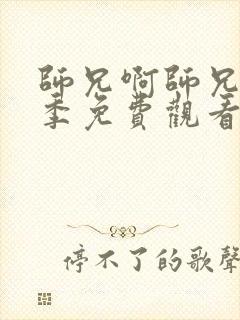 師兄啊師兄
季免費觀看
停不了的歌聲